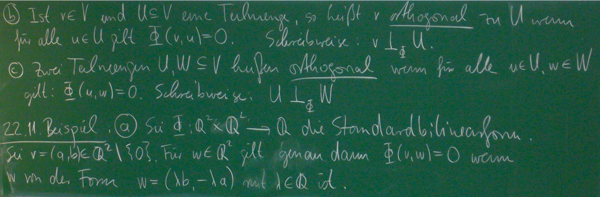 ⓑ Ist v∈V und U⊆V eine Teilmenge, so heißt v orthogonal zu U wenn
für alle u∈U gilt Φ(v,u)=0. Schreibweise: v ⊥_Φ U.
ⓒ Zwei Teilmengen U,W⊆V heißen orthogonal wenn für alle u∈U, w∈W
gilt: Φ(u,w)=0. Schreibweise: U ⊥_Φ W
22.11 Beispiel. ⓐ Sei Φ: ℚ²×ℚ² → ℚ die Standardbilinearform.
Sei v=(a,b)∈ℚ²\{0}. Für w∈ℚ² gilt genau dann Φ(v,w)=0 wenn
w von der Form w=(λb,-λa) mit λ∈ℚ ist.